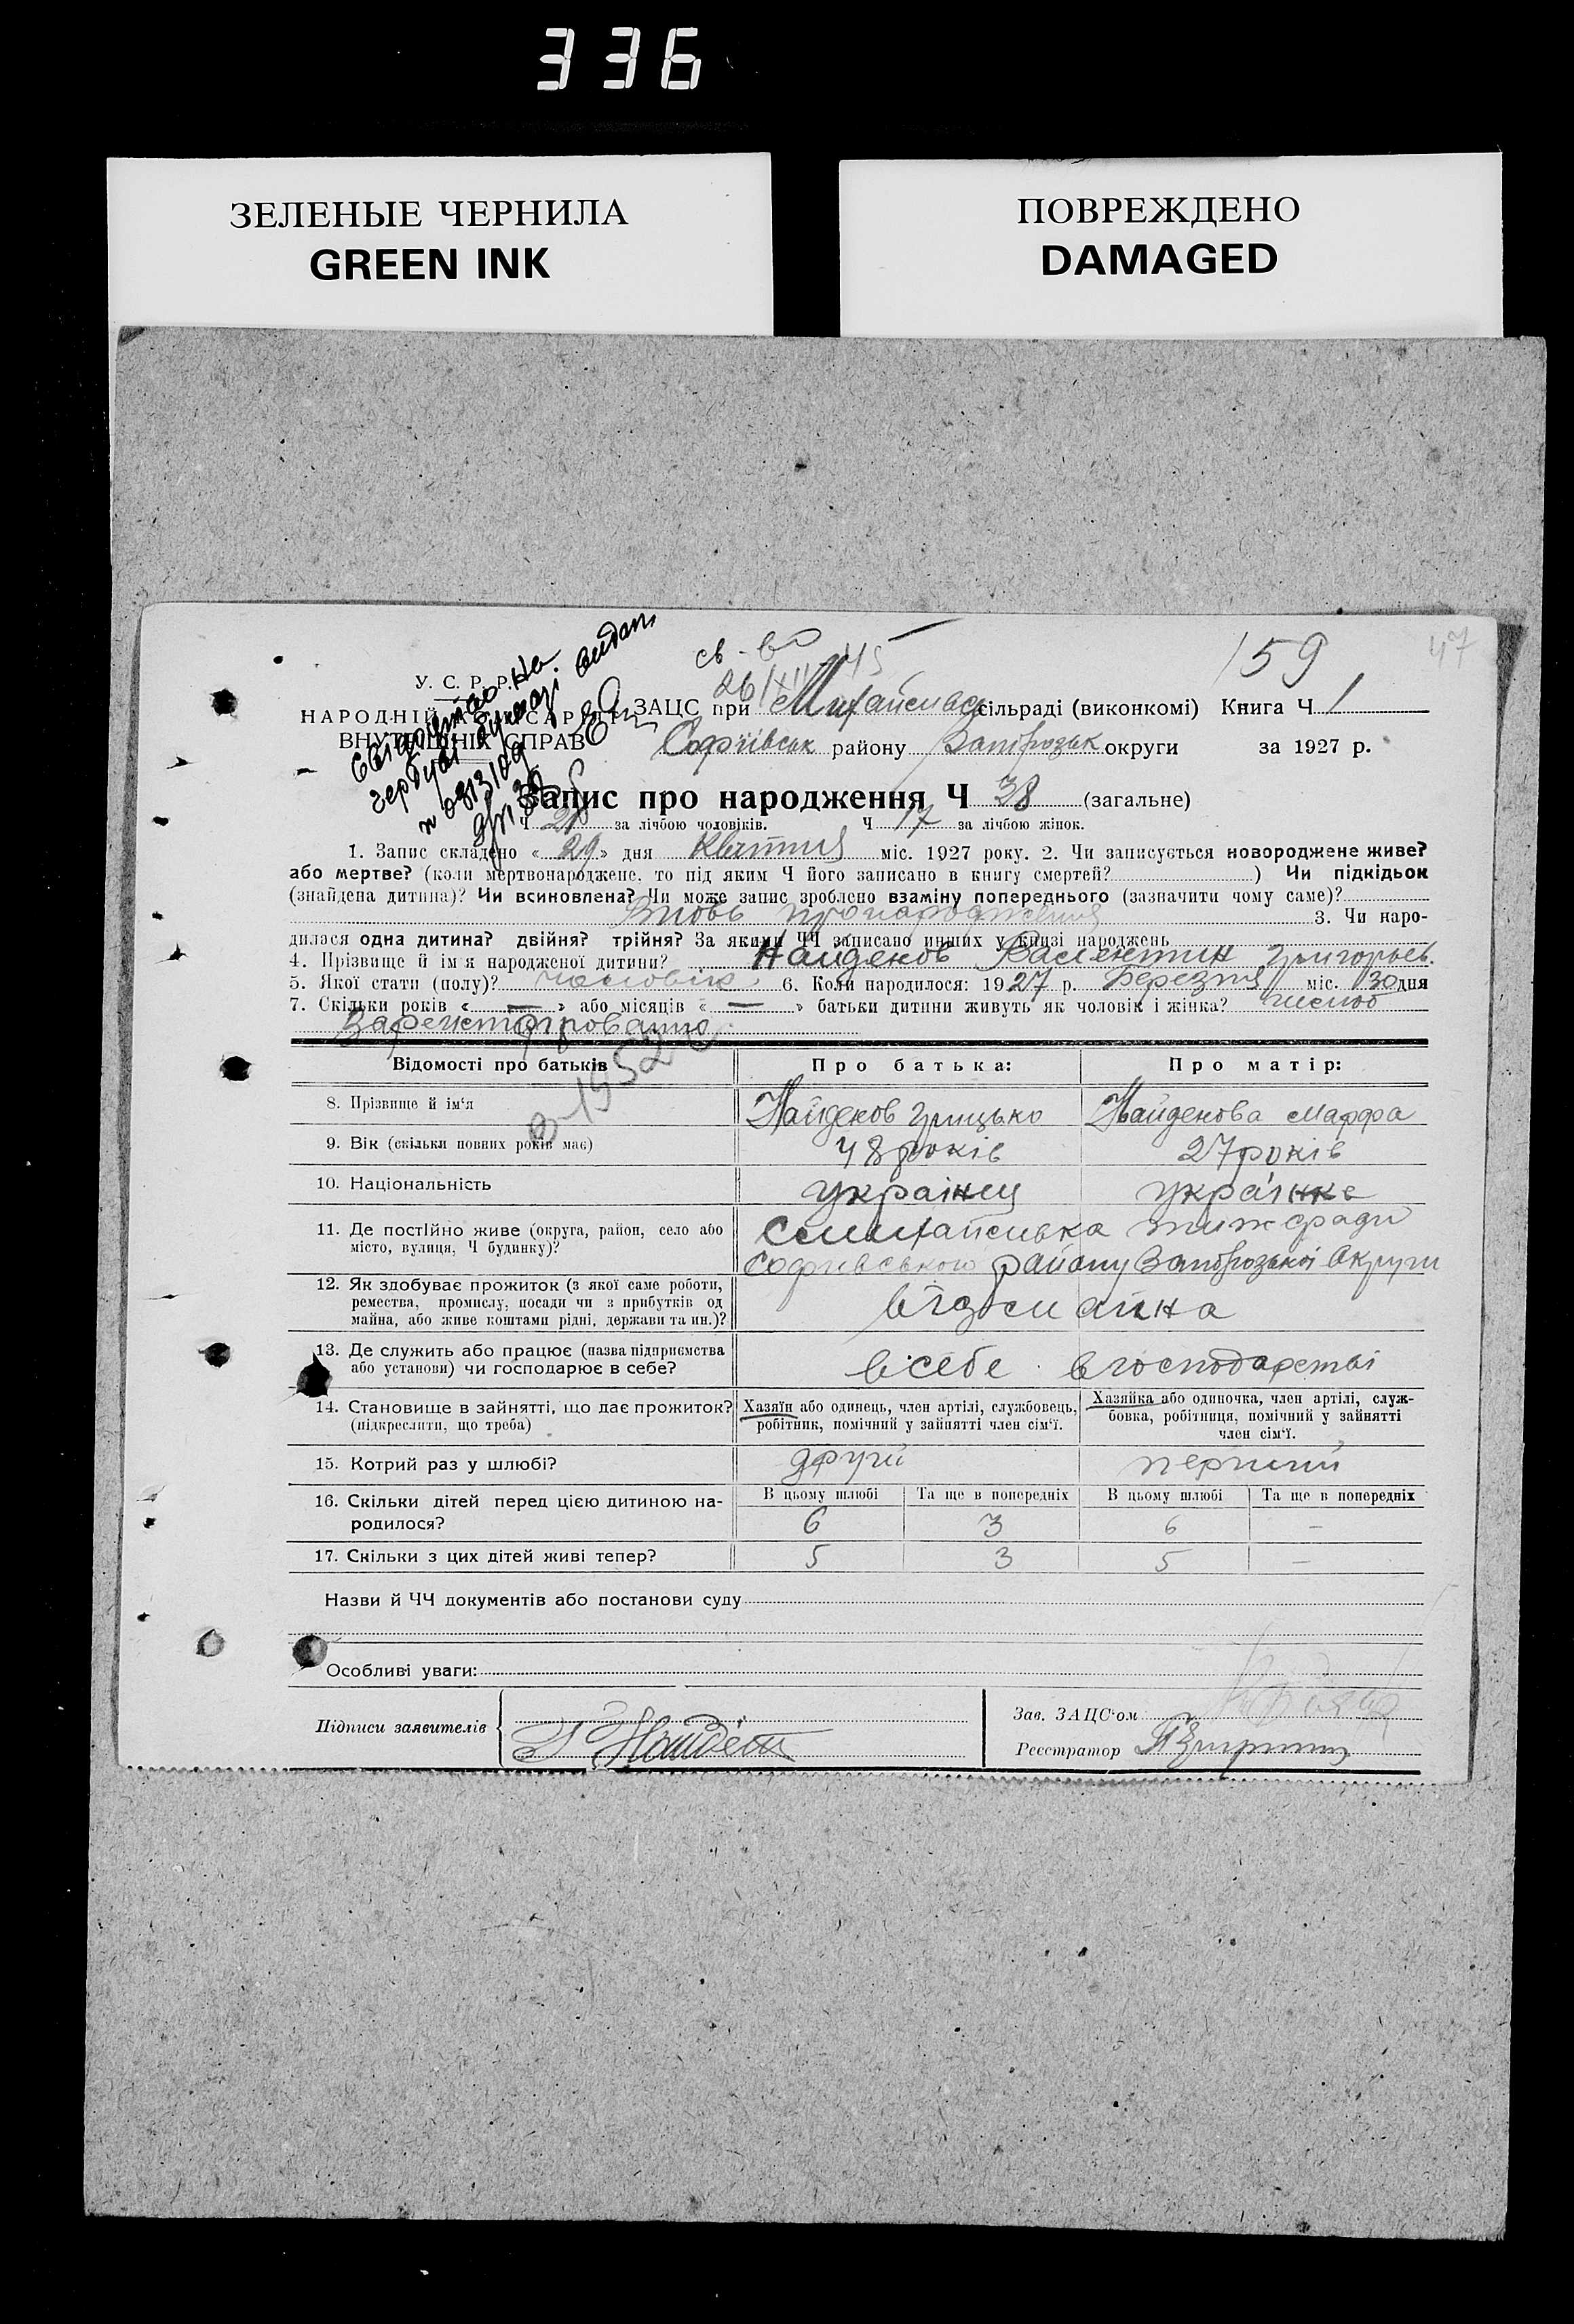 336
ЗЕЛЕНЫЕ ЧЕРНИЛА
GREEN INK
ПОВРЕЖДЕНО
DAMAGED
47
159
св-во
26/XII 45
У. С. Р. Р.
НАРОДНІЙ КОМІСАРІЯТ
ВНУТРІШНІХ СПРАВ
ЗАЦС при сільраді (виконкомі) Книга Ч 1
Софіївськ району Запорозьк округи за 1927 р.
Запис про народження Ч 38 (загальне)
Ч 21 за лічбою чоловіків. Ч 17 за лічбою жінок.
1. Запис складено « 29 » дня Квітня міс. 1927 року. 2. Чи записується новороджене живе?
або мертве? (коли мертвонароджене, то під яким Ч його записано в книгу смертей? ) Чи підкідьок
(знайдена дитина)? Чи всиновлена? Чи може запис зроблено взаміну попереднього (зазначити чому саме)?
3. Чи наро-
дилася одна дитина? двійня? трійня? За якими ЧЧ записано инших у книзі народжень
4. Прізвище й ім'я народженої дитини? Найденов Валентин Григорьев.
5. Якої стати (полу)? чоловік. 6. Коли народилося: 1927 р. Березня міс. 30 дня
7. Скільки років « — » або місяців « — » батьки дитини живуть як чоловік і жінка?
Відомості про батьків Про батька: Про матір:
8. Прізвище й ім'я Найденов Грицько Найденова Марфа
9. Вік (скільки повних років має) 48 років 27 років
10. Національність українец українка
11. Де постійно живе (округа, район, село або
місто, вулиця, Ч будинку)?
району Запорозької Округи
12. Як здобуває прожиток (з якої саме роботи,
ремества, промислу, посади чи з прибутків од
майна, або живе коштами рідні, держави та ин.)?
13. Де служить або працює (назва підприємства
або установи) чи господарює в себе? в себе в господарстві
14. Становище в зайнятті, що дає прожиток?
(підкреслити, що треба)
Хазяїн або одинець, член артілі, службовець,
робітник, помічний у зайнятті член сім'ї.
Хазяйка або одиночка, член артілі, служ-
бовка, робітниця, помічний у зайнятті
член сім'ї.
15. Котрий раз у шлюбі? други перший
16. Скільки дітей перед цією дитиною на-
родилося?
В цьому шлюбі Та ще в попередніх В цьому шлюбі Та ще в попередніх
6 3 6 —
17. Скільки з цих дітей живі тепер? 5 3 5 —
Назви й ЧЧ документів або постанови суду
Особливі уваги:
Підписи заявителів
Зав. ЗАЦС'ом
Реєстратор